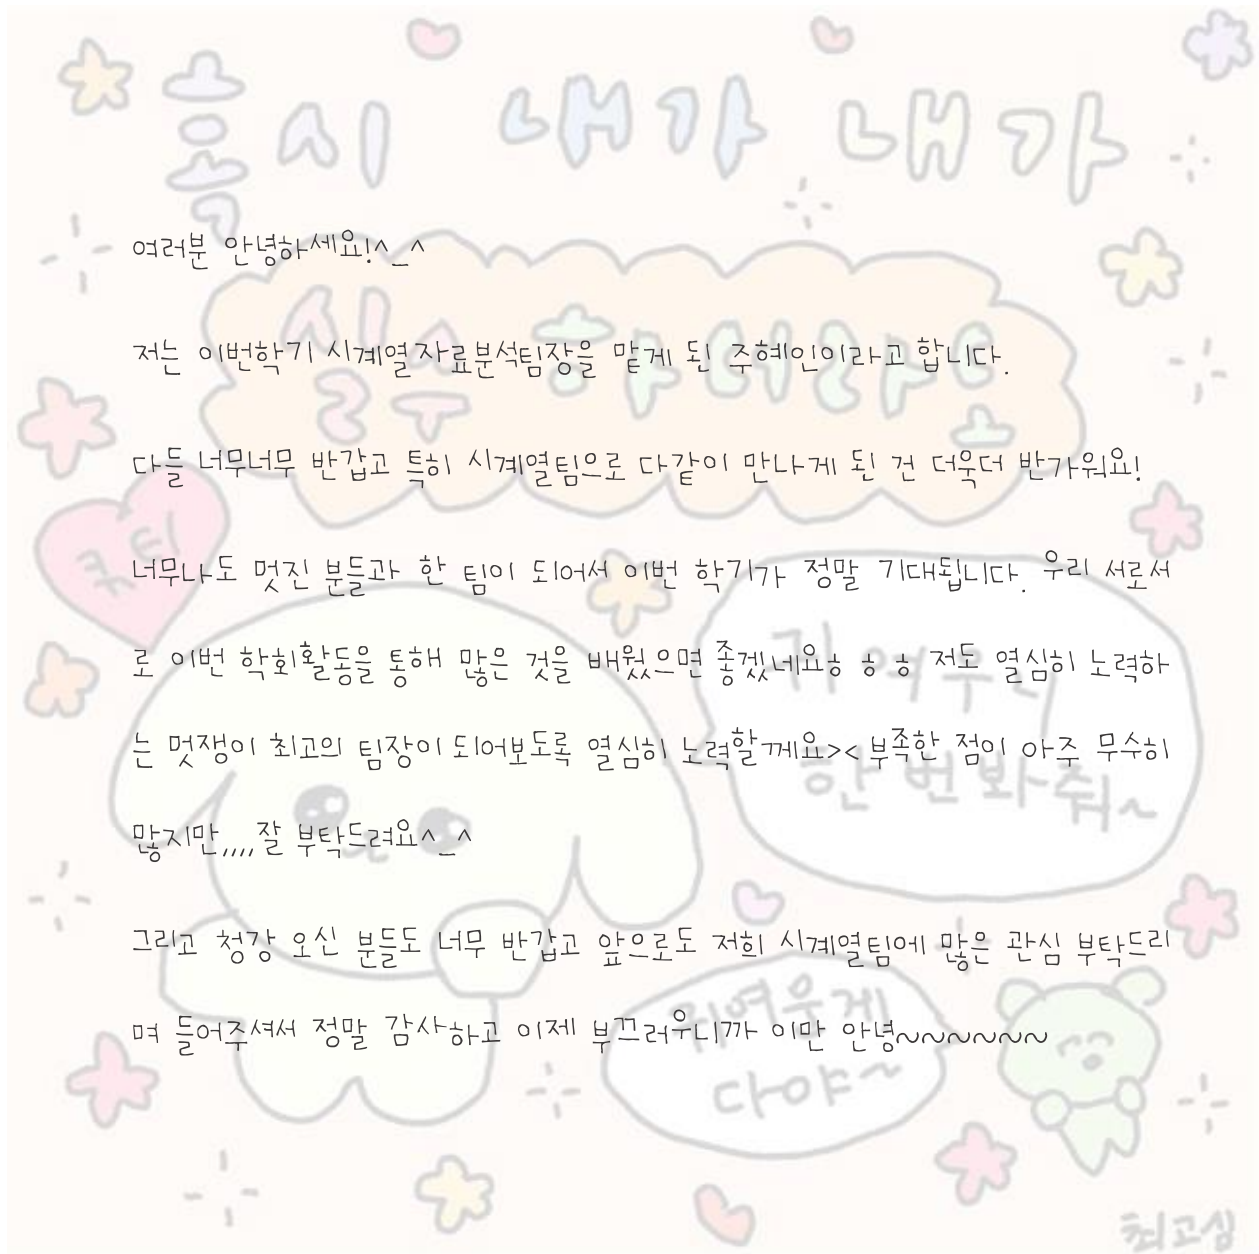 흑시 내가 내가
여러분 안녕하세요!^_^
실수 하더라도
저는 이번학기 시계열자료분석팀장을 맡게 된 주혜인이라고 합니다.
다들 너무너무 반갑고 특히 시계열팀으로 다같이 만나게 된 건 더욱더 반가워요!
쿠티
너무나도 멋진 분들과 한 팀이 되어서 이번 학기가 정말 기대됩니다. 우리 서로서
로 이번 학회활동을 통해 많은 것을 배웠으면 좋겠네요ㅎ ㅎ ㅎ 저도 열심히 노력하
귀여우니
는 멋쟁이 최고의 팀장이 되어보도록 열심히 노력할께요>< 부족한 점이 아주 무수히
한번봐줘~
많지만,,,,잘 부탁드려요^_^
그리고 청강 오신 분들도 너무 반갑고 앞으로도 저희 시계열팀에 많은 관심 부탁드리
며 들어주셔서 정말 감사하고 이제 부끄러우니까 이만 안녕~~~~~~~
귀여운게
다야~
최고심